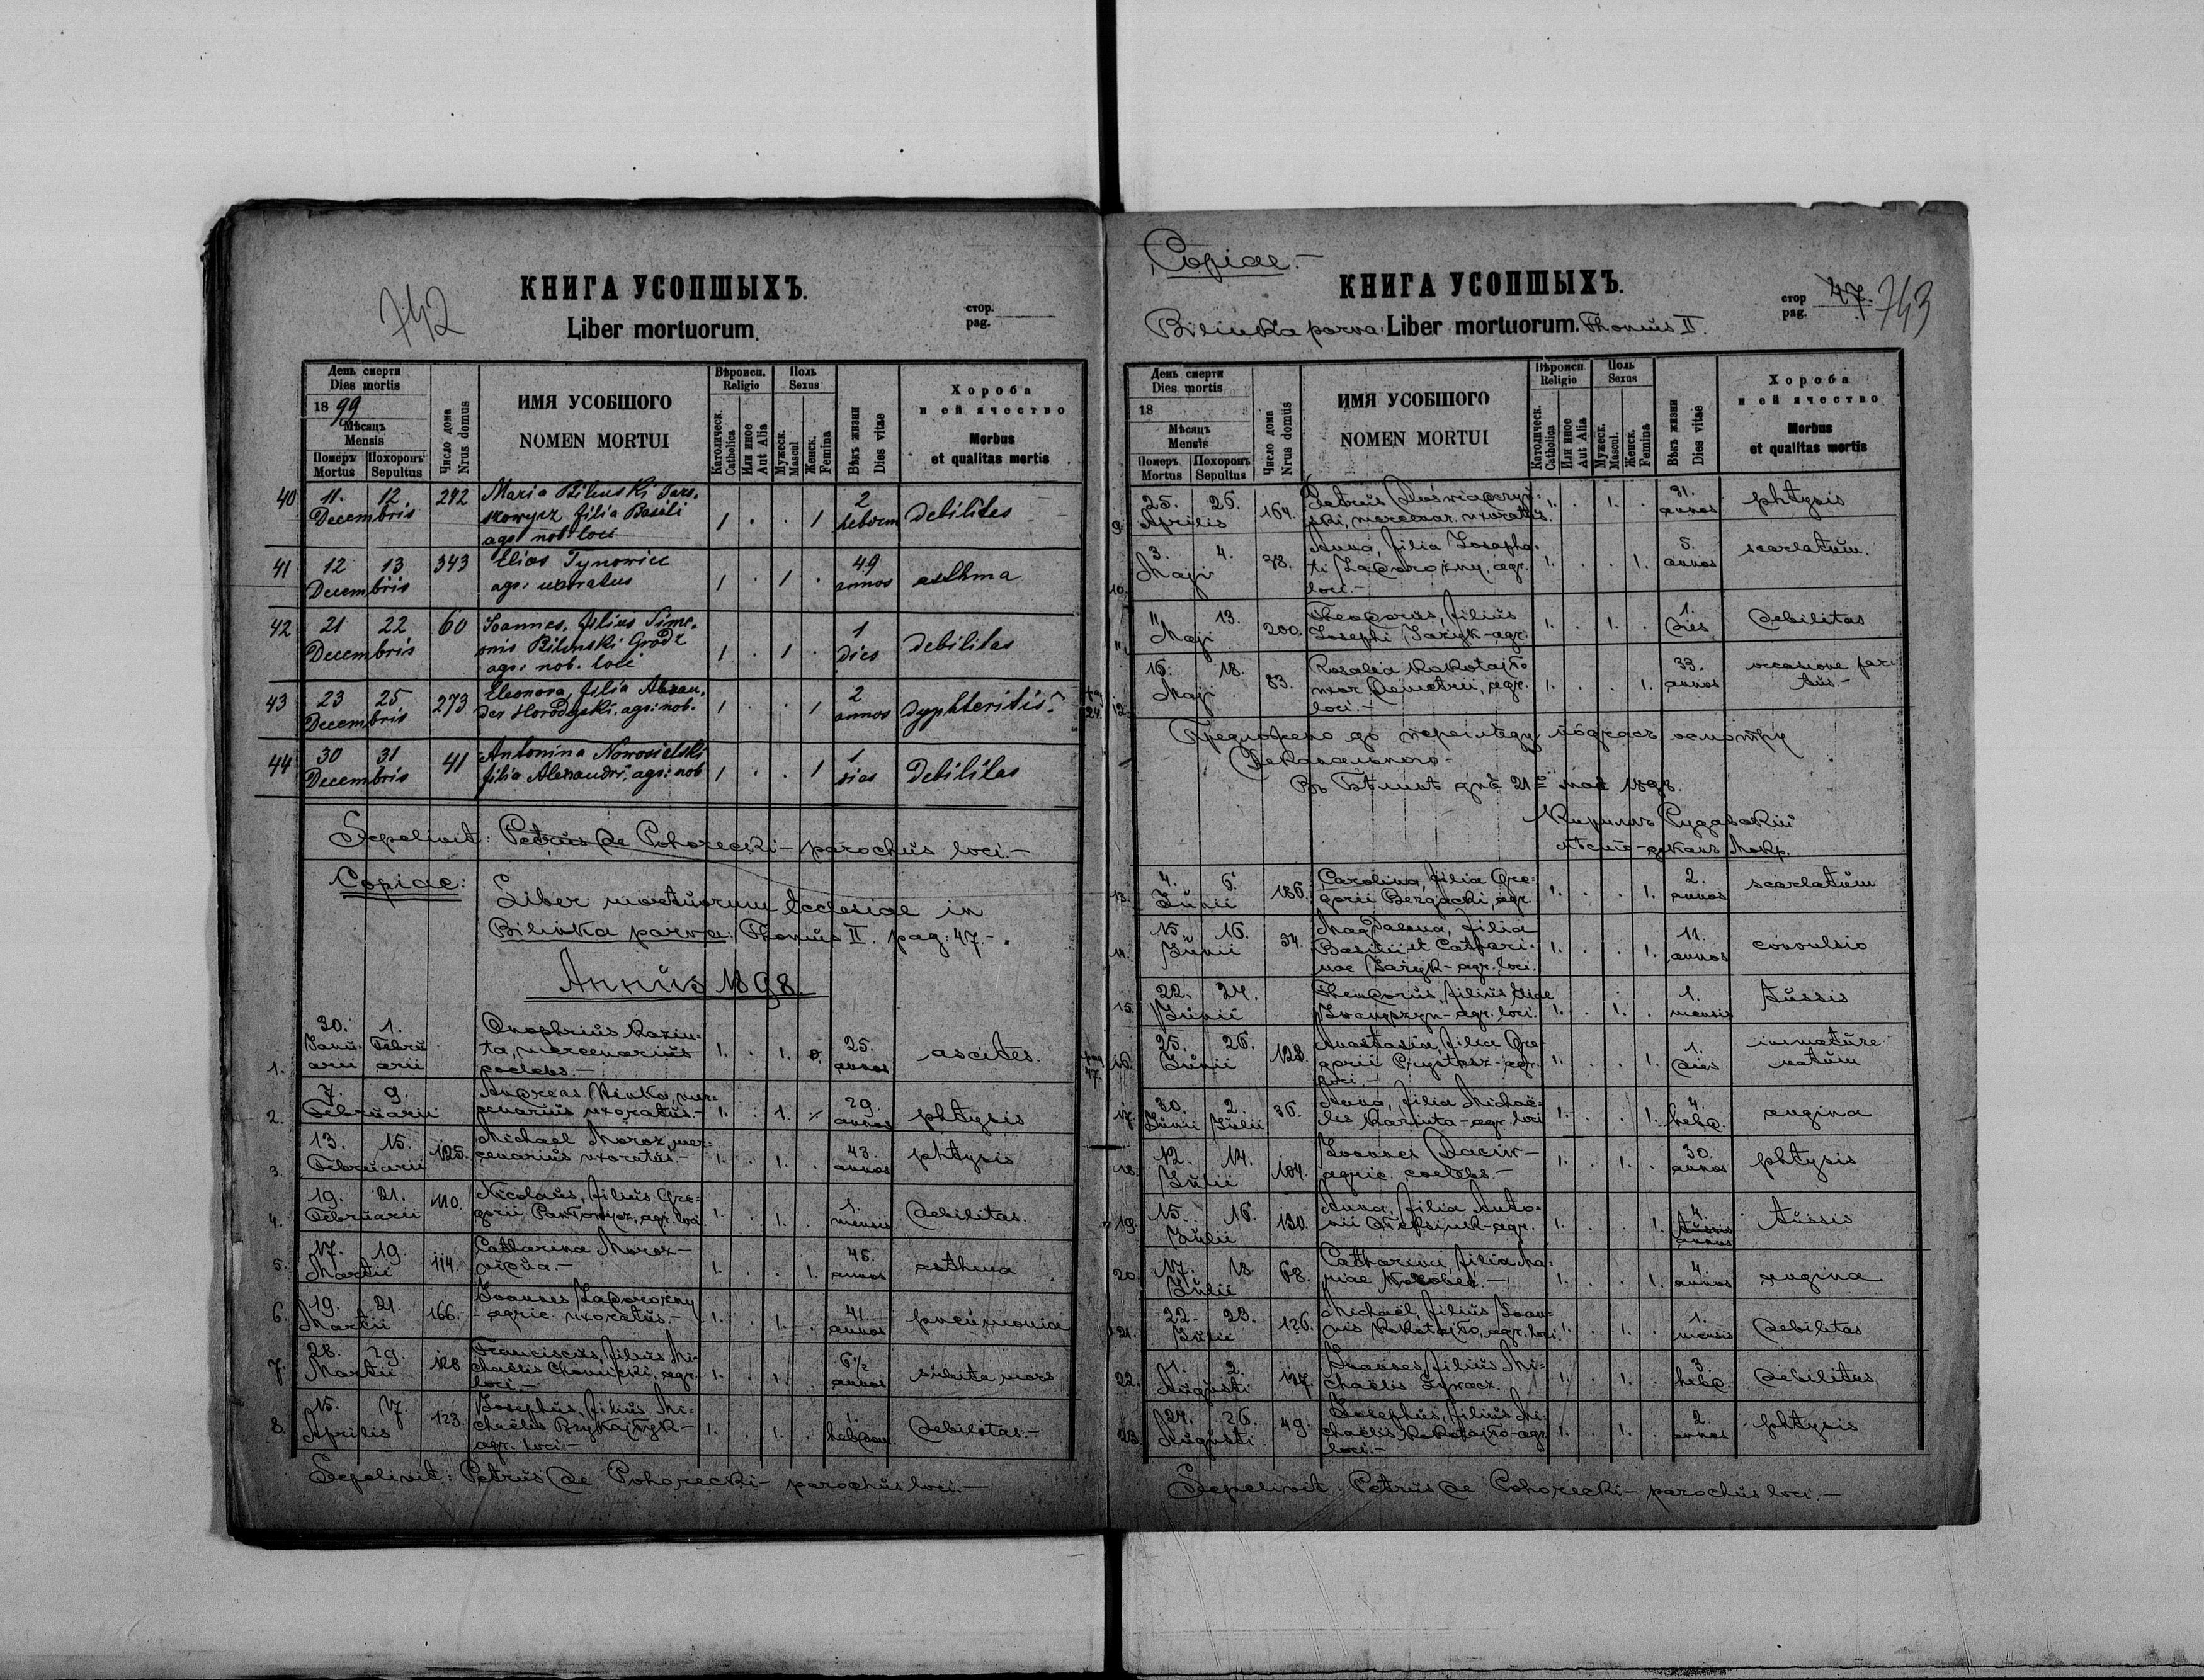 742
КНИГА УСОПШЫХЪ.
Liber mortuorum.
стор.
pag.
День смерти
Dies mortis
1899
Мѣсяцъ
Mensis
Померъ
Mortus
Похоронъ
Sepultus
Число дома
Nrus domus
ИМЯ УСОБШОГО
NOMEN MORTUI
Вѣроисп.
Religio
Католическ.
Catholica
Или иное
Aut Alia
Поль
Sexus
Мужеск.
Mascul
Женск.
Femina
Вѣкъ жизни
Dies vitae
Хороба
и ей ячество
Morbus
et qualitas mortis
40 11. 12. 292 Maria Bilinski Tars-
Decembris skowycz filia Basili 1 . . 1 2 hebdom debilitas
agr. nob. loci
41 12 13 343 Elias Tynowicz
Decembris agr: uxoratus 1 . 1 . 49 annos asthma
42 21 22 60 Ioannes, filius Sime-
Decembris onis Bilinski Grodz 1 . 1 . 1 dies debilitas
agr: nob. loci
43 23 25 273 Eleonora, filia Alexan-
Decembris der Horodyski, agr: nob. 1 . . 1 2 annos dyphteritis
44 30 31 41 Antonina Nowosielski
Decembris filia Alexandri, agr: nob 1 . . 1 1 dies debilitas
Sepelivit: Petrus de Pohorecki - parochus loci.-
Copiae: Liber mortuorum Ecclesiae in
Bilinka parva: Thomus II. pag: 47.-
Annus 1898.
1. 30. Januarii 1. Februarii Onophrius Kazim-
ta, mercenarius 1. . 1. 25. annos ascites.
coelebs.-
2. 7. 9. Februarii Andreas Hinka, mer-
cenarius uxoratus.- 1. . 1. 29. annos phtysis
3. 13. 15. Februarii 125. Michael Moroz, mer-
cenarius uxoratus.- 1. . 1. . 43. annos phtysis
4. 19. 21. Februarii 110. Nicolaus, filius Gre-
gorii Pankowycz, agr. loci. 1. . 1. . 1. mensis debilitas.
5. 17. 19. Martii 114. Catharina Moroz-
vidua.- 1. . . 1. 45. annos asthma
6. 19. 21. Martii 166. Ioannes Zadorozny
- agric. uxoratus.- 1. . 1. . 41. annos pneumonia
7. 28. 29. Martii 128 Franciscus, filius Mi-
chaëlis Chomicki, agr. 1. . 1. . 6 1/2 annos subita mors
loci.-
8. 15. 17. Aprilis 123. Josephus, filius Mi-
chaëlis Brykajlyk- 1. . 1. . 1. hebdom. debilitas.-
agr. loci.-
Sepelivit: Petrus de Pohorecki - parochus loci.-
Copiae.-
КНИГА УСОПШЫХЪ.
Bilinka parva: Liber mortuorum. Thomus II.
стор
pag. 47. 743
День смерти
Dies mortis
18
Мѣсяцъ
Mensis
Померъ
Mortus
Похоронъ
Sepultus
Число дома
Nrus domus
ИМЯ УСОБШОГО
NOMEN MORTUI
Вѣроисп
Religio
Католическ.
Catholica
Или иное
Aut Alia
Поль
Sexus
Мужеск.
Mascul.
Женск.
Femina
Вѣкъ жизни
Dies vitae
Хороба
и ей ячество
Morbus
et qualitas mortis
9. 25. 25. Aprilis 164. Petrus
ski, mercenar. uxoratus. 1. . 1. . 31. annos phtysis
10. 3. 4. Maji 38. Anna, filia Josapha-
ti Zadorozny, agr. 1. . . 1. 5. annos scarlatum.
loci.-
11. " 13. Maji 200. Theodorus, filius
Josephi Jazyk-agr. 1. . 1. . 1. dies debilitas
12. 16. 18. Maji 83. Rosalia Kokotajlo
uxor Demetrii, agr. 1. . . 1. 33. annos occasione par-
loci.- tus.-
Предложено до перегляду пôдчасъ осмотру
Деканального-
Въ дня 21 мая 1898.
Кирилъ Рудавскій
13. 4. 6. Junii 186. Carolina, filia Gre-
gorii Bergacki, agr 1. . . 1. 2. annos scarlatum
14. 15. 16. Junii 34. Magdalena, filia
Basilii et Cathari- 1. . . 1. 11. annos convulsio
nae Jazyk- agr. loci.
15. 22. 24. Junii Theodorus, filius Eliae
agr. loci. 1. . 1. . 1. mensis tussis
16. 25. 26. Junii 128. Anastasia, filia Gre-
gorii Prystasz-agr. 1. . . 1. 1. dies immature
loci.- natum
17. 30. Junii 2. Julii 36. Anna, filia Michaë-
lis Karpinta-agr. loci 1. . . 1. 4. hebd. angina
18. 12. 14. Julii 104. Ioannes Daciw-
agric. coelebs.- 1. . 1. . 30. annos phtysis
19. 15. 16. Julii 130. Anna, filia Anto-
nii Oleksiuk-agr. 1. . . 1. 4. annos tussis
20. 17. 18. Julii 68. Catharina, filia Ma-
riae 1. . . 1. 4. annos angina
21. 22. 23. Julii 126. Michaël, filius Ioan-
nis Kokotajlo, agr. loci. 1. . 1. . 1. mensis debilitas
22. 1. 2. Augusti 117. Ioannes, filius Mi-
chaëlis 1. . 1. . 3. hebd. debilitas
23. 24. 26. Augusti 49. Josephus, filius Mi-
chaëlis Kokotajlo-agr 1. . 1. . 2. annos phtysis
loci.-
Sepelivit: Petrus de Pohorecki - parochus loci.-